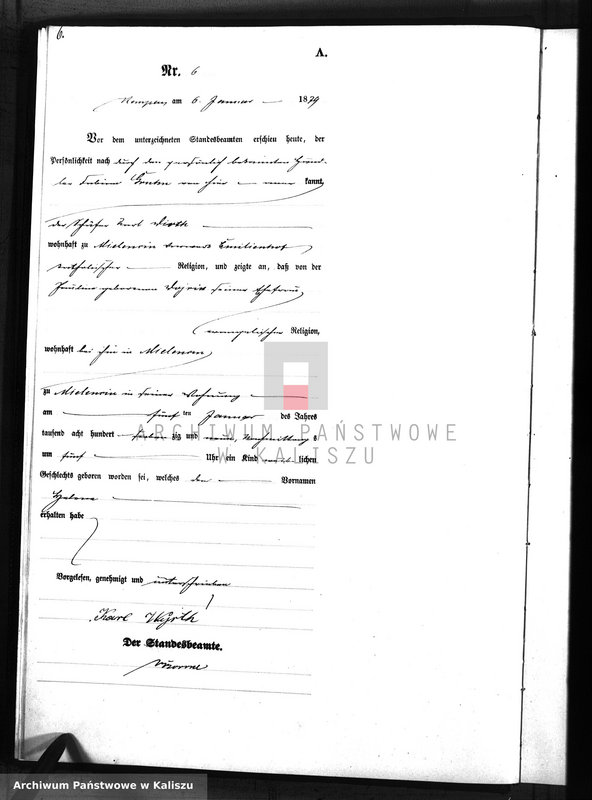 6.
A.
Nr. 6
Kempen am 6. Januar 1879
Vor dem unterzeichneten Standesbeamten erschien heute, der
Persönlichkeit nach durch den persönlich bekannten Händ-
ler von hier kannt,
der Schäfer Karl
wohnhaft zu
katholischer Religion, und zeigte an, daß von der
geborenen seiner Ehefrau
evangelischer Religion,
wohnhaft bei ihm in
zu in seiner Wohnung
am fünf ten Januar des Jahres
tausend acht hundert sieben zig und neun, Nachmittag s
um fünf Uhr ein Kind lichen
Geschlechts geboren worden sei, welches den Vornamen
Helene
erhalten habe
Vorgelesen, genehmigt und unterschrieben
Karl Wyrth
Der Standesbeamte.
ARCHIWUM PAŃSTWOWE
W KALISZU
Archiwum Państwowe w Kaliszu